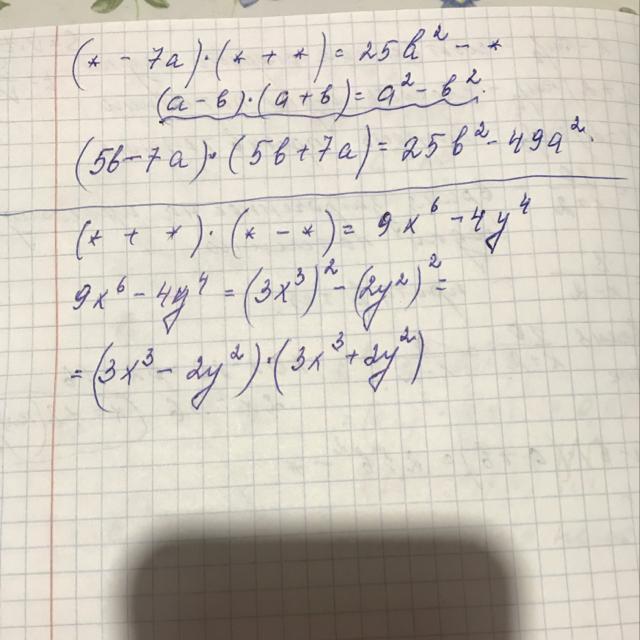 (* - 7a)·(* + *) = 25b² - *
(a - b)·(a + b) = a² - b².
(5b - 7a)·(5b + 7a) = 25b² - 49a².
(* + *)·(* - *) = 9x⁶ - 4y⁴
9x⁶ - 4y⁴ = (3x³)² - (2y²)² =
= (3x³ - 2y²)·(3x³ + 2y²)